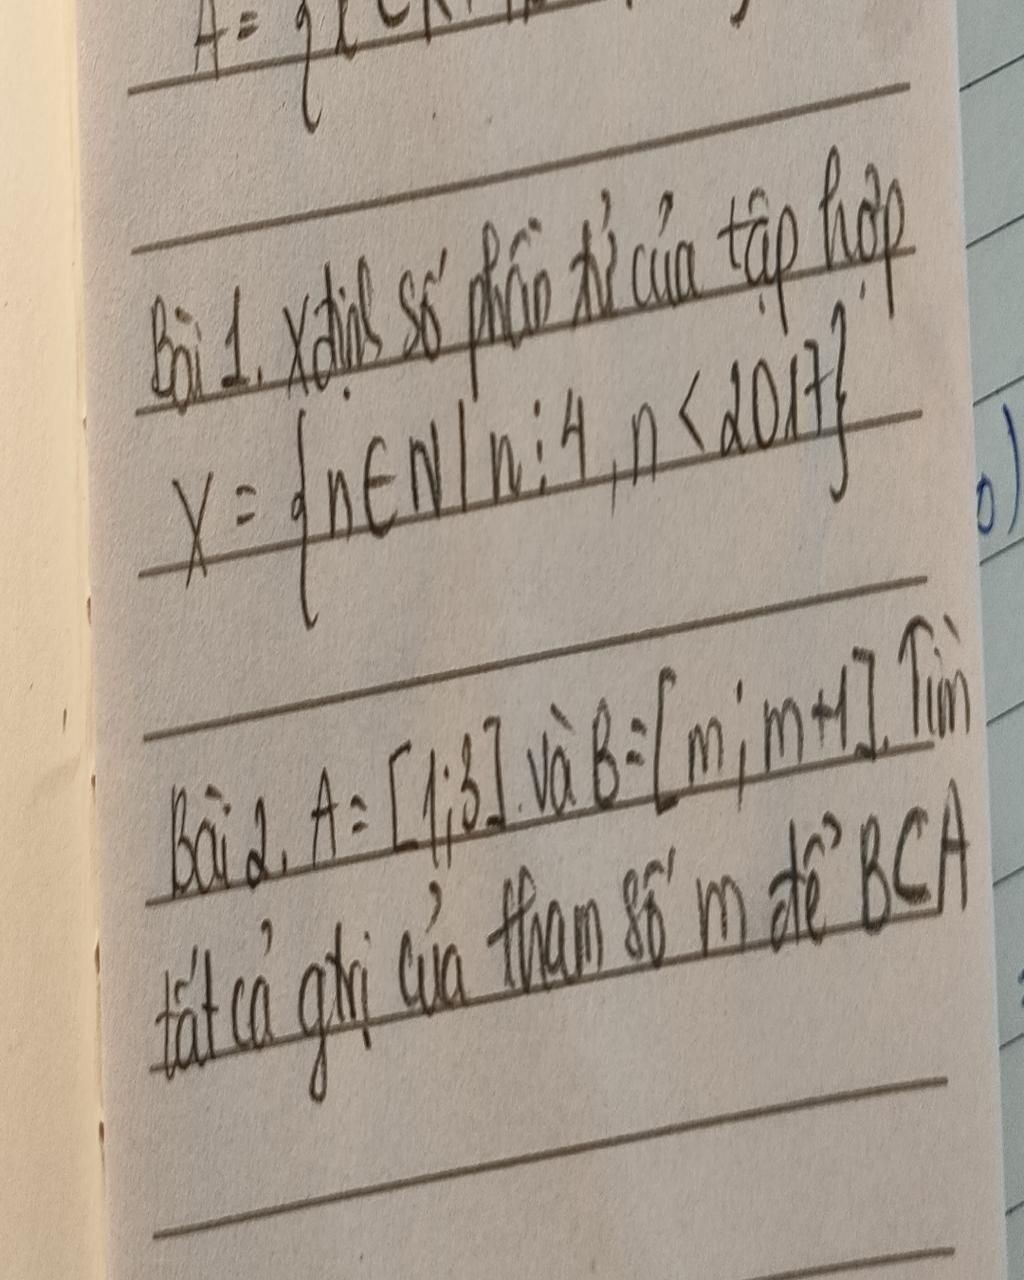 A = {
Bài 1. Xđịnh số phần tử của tập hợp
X = {n ∈ N / n ⋮ 4, n < 2017}
Bài 2. A = [1;3]. và B = [m; m+1]. Tìm
tất cả gtrị của tham số m để B⊂A
o)